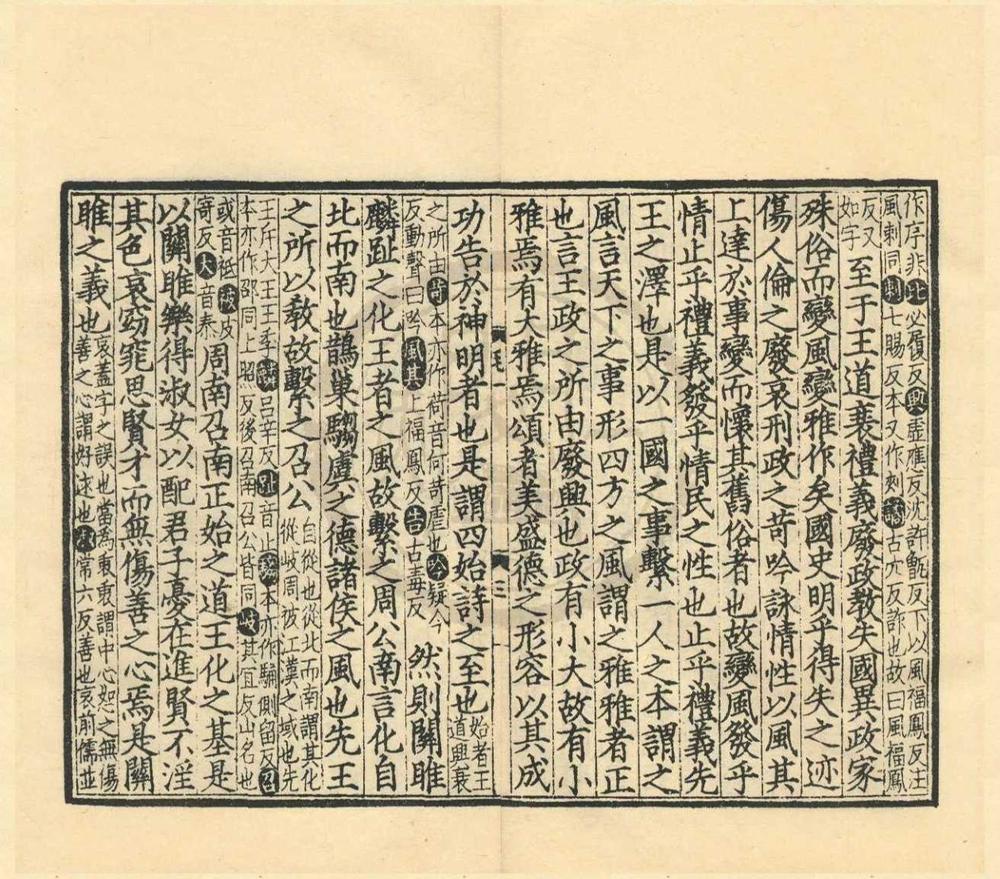 作序非比必履反興虛應反沈許甑反下以風福鳳反注
風刺同刺七賜反本又作刾譎古穴反詐也故曰風福鳳
反又如字至于王道衰禮義廢政教失國異政家
殊俗而變風變雅作矣國史明乎得失之迹
傷人倫之廢哀刑政之苛吟詠情性以風其
上達於事變而懷其舊俗者也故變風發乎
情止乎禮義發乎情民之性也止乎禮義先
王之澤也是以一國之事繫一人之本謂之
風言天下之事形四方之風謂之雅雅者正
也言王政之所由廢興也政有小大故有小
雅焉有大雅焉頌者美盛德之形容以其成
毛一 三
功告於神明者也是謂四始詩之至也始者王道興衰
之所由苛本亦作荷音何苛虐也吟疑今反動聲曰吟風其上福鳳反告古毒反然則關雎
麟趾之化王者之風故繫之周公南言化自
北而南也鵲巢騶虞之德諸侯之風也先王
之所以教故繫之召公自從也從北而南謂其化從岐周被江漢之域也先
王斥大王王季麟呂辛反趾音止騶本亦作側留反召
本亦作邵同上照反後召南召公皆同岐其宜反山名也
或音祗被皮寄反大音泰周南召南正始之道王化之基是
以關雎樂得淑女以配君子憂在進賢不淫
其色哀窈窕思賢才而無傷善之心焉是關
雎之義也哀蓋字之誤也當為衷衷謂中心恕之無傷善之心謂好逑也淑常六反善也哀前儒並